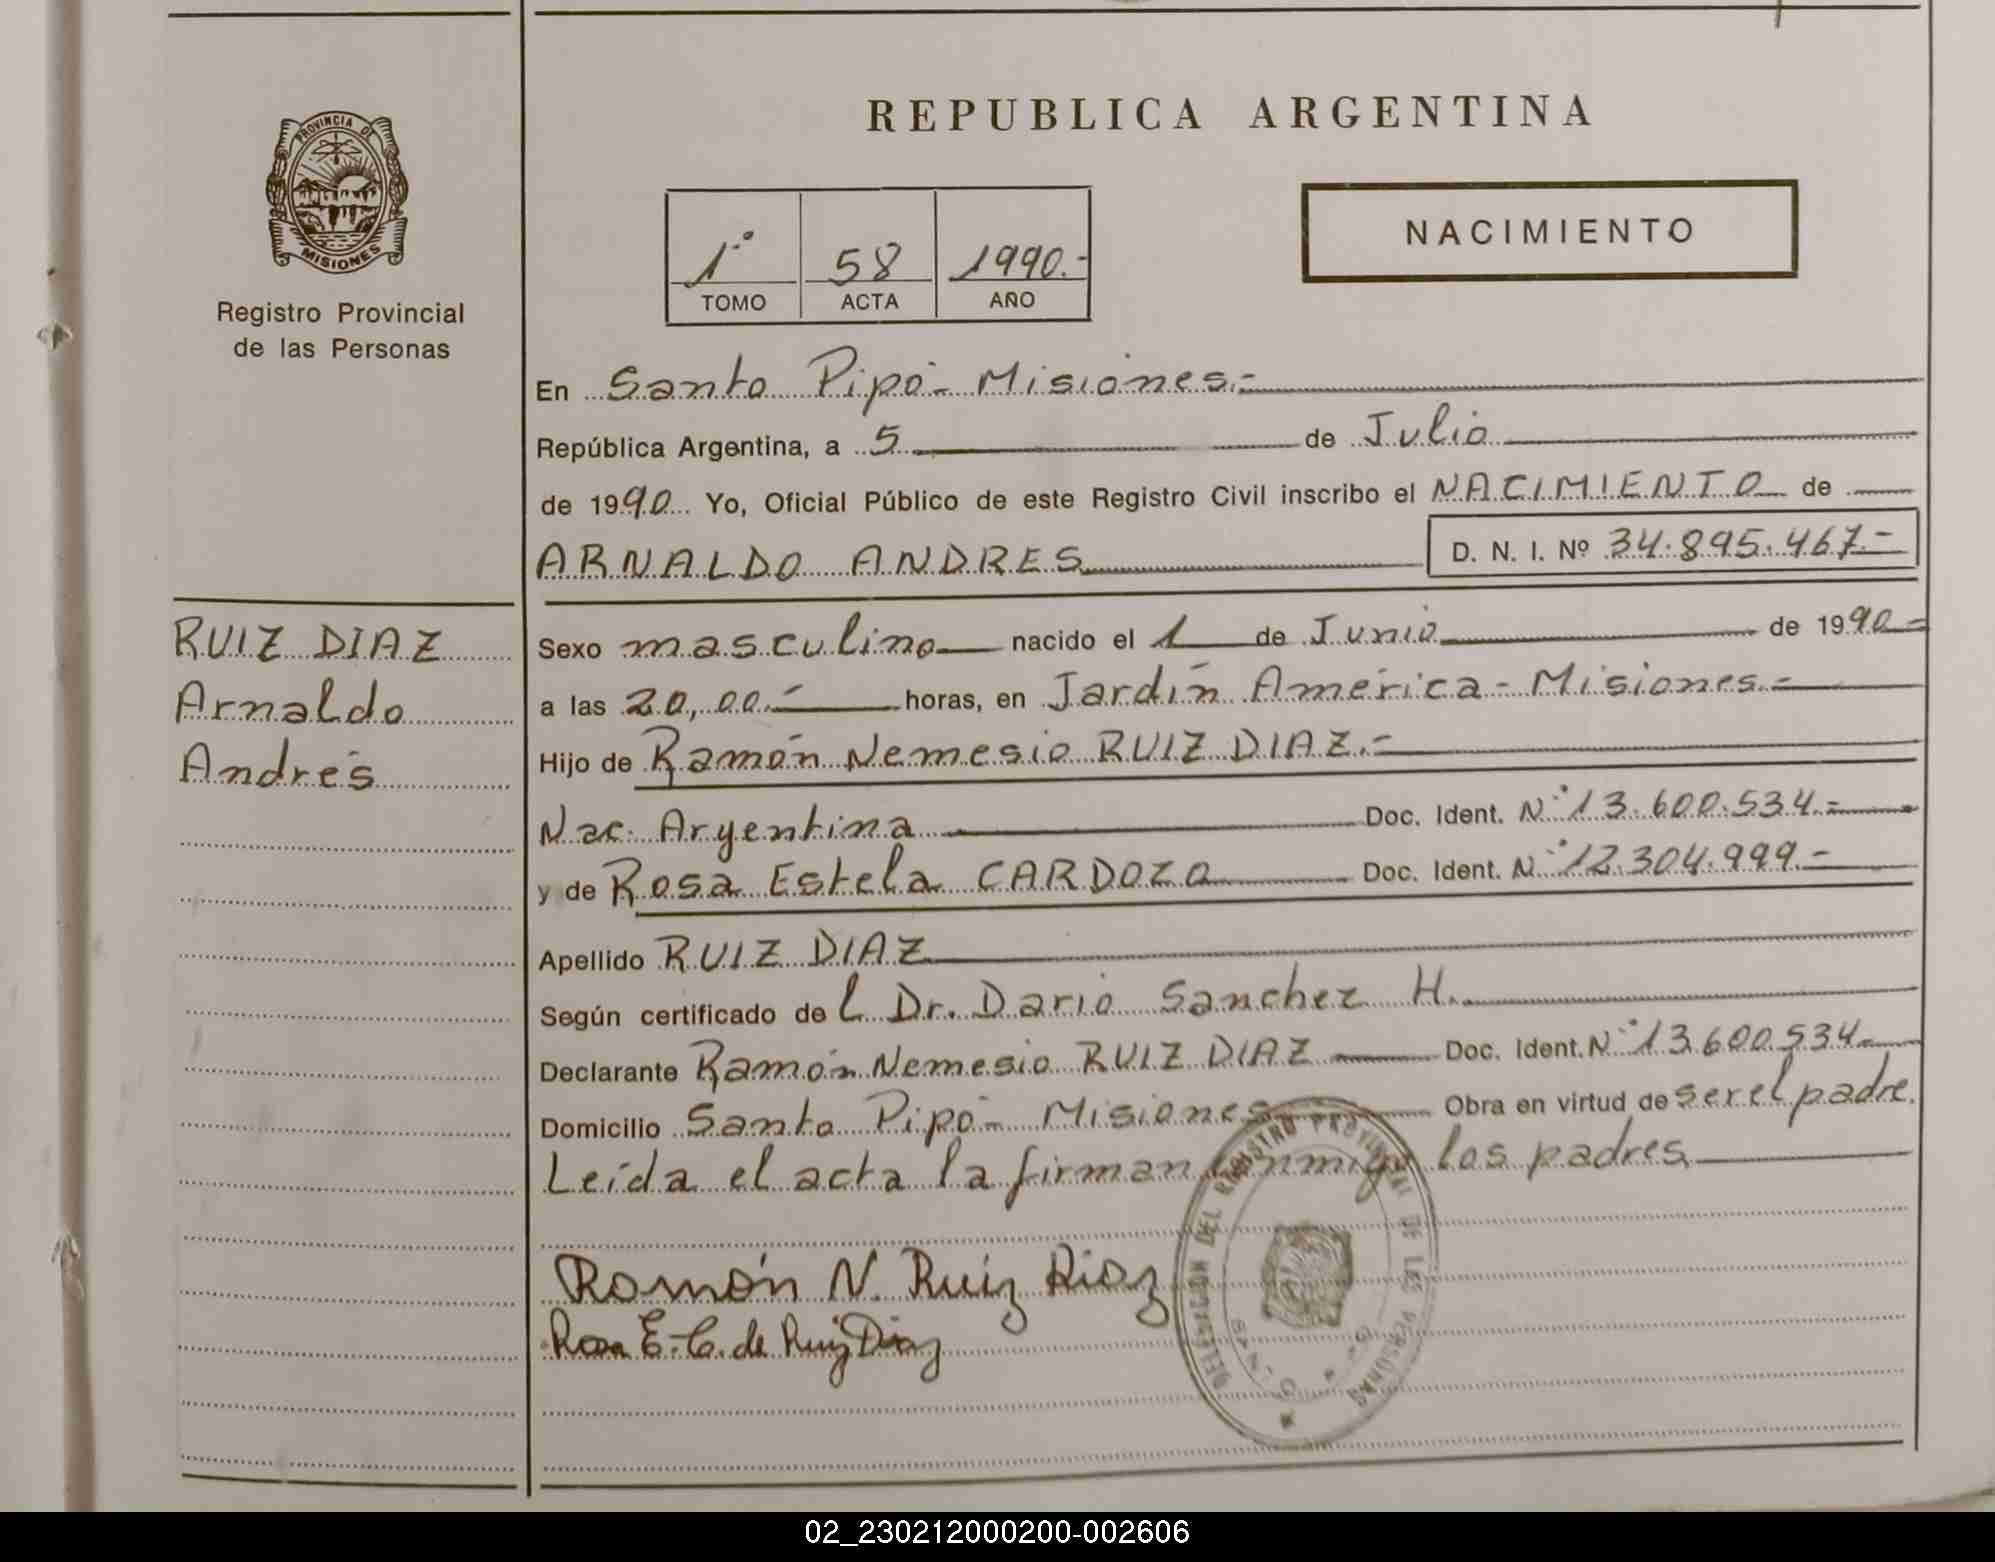 PROVINCIA DE
MISIONES
Registro Provincial
de las Personas
RUIZ DIAZ
Arnaldo
Andrés
REPUBLICA ARGENTINA
1º 58 1990.-
TOMO ACTA AÑO
NACIMIENTO
En Santo Pipó - Misiones.-
República Argentina, a 5 de Julio
de 1990 Yo, Oficial Público de este Registro Civil inscribo el NACIMIENTO de
ARNALDO ANDRES D. N. I. Nº 34.895.467.-
Sexo masculino nacido el 1 de Junio de 1990-
a las 20,00.- horas, en Jardín América - Misiones.-
Hijo de Ramón Nemesio RUIZ DIAZ.-
Nac. Argentina Doc. Ident. Nº 13.600.534.-
y de Rosa Estela CARDOZO Doc. Ident. Nº 12.304.999.-
Apellido RUIZ DIAZ
Según certificado de l Dr. Dario Sanchez H.
Declarante Ramón Nemesio RUIZ DIAZ Doc. Ident. Nº 13.600.534-
Domicilio Santo Pipó - Misiones Obra en virtud de ser el padre.
Leída el acta la firman conmigo los padres
Ramón N. Ruiz Diaz
Rosa E. C. de Ruiz Diaz
DELEGACION DEL REGISTRO PROVINCIAL DE LAS PERSONAS
02_230212000200-002606